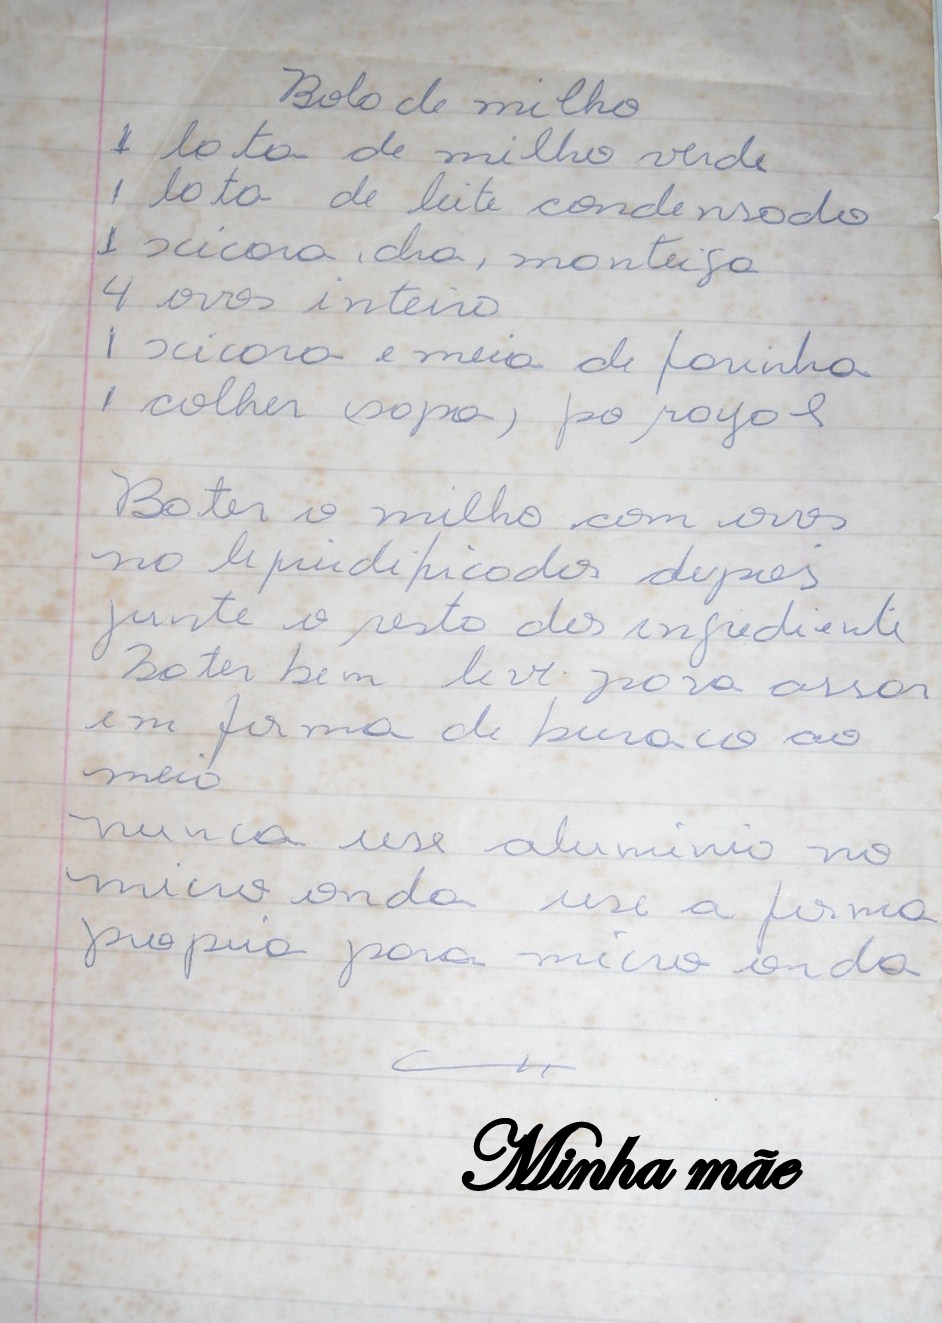 Bolo de milho
1 lata de milho verde
1 lata de leite condensado
1 xicara, cha, manteiga
4 ovos inteiro
1 xicara e meia de farinha
1 colher (sopa) po royal
Bater o milho com ovos
no lipuidificador depois
junte o resto dos ingrediente
Bater bem leve para assar
em forma de buraco ao
meio
nunca use aluminio no
micro onda use a forma
propria para micro onda
Minha mãe